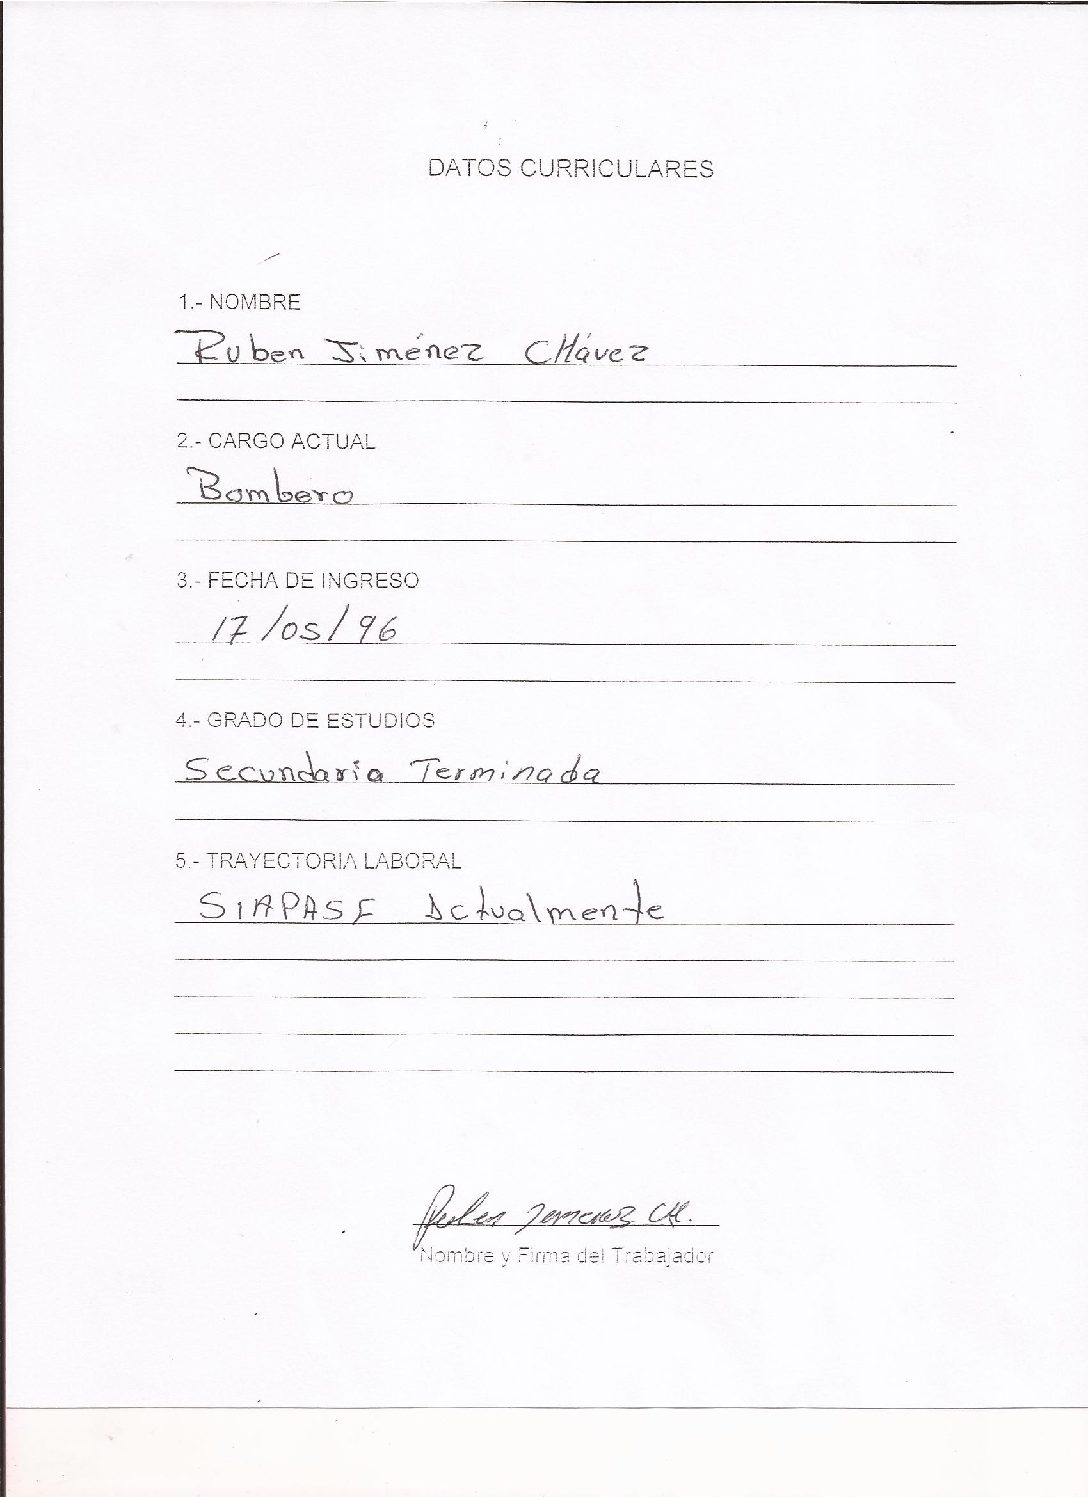 DATOS CURRICULARES
1.- NOMBRE
Ruben Jiménez CHávez
2.- CARGO ACTUAL
Bombero
3.- FECHA DE INGRESO
17/05/96
4.- GRADO DE ESTUDIOS
Secundaria Terminada
5.- TRAYECTORIA LABORAL
SIAPASF Actualmente
Ruben Jimenez CH.
Nombre y Firma del Trabajador